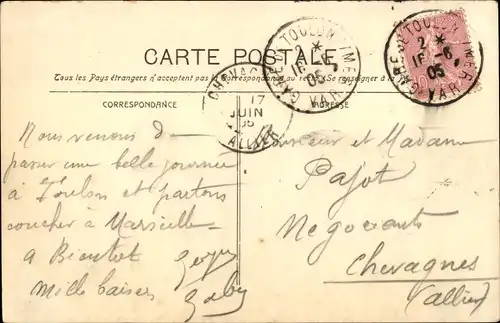 CARTE POSTALE
Tous les Pays étrangers n'acceptent pas la Correspondance au recto. Se renseigner à
CORRESPONDANCE
ADRESSE
GARE DE TOULON VAR
2 *
16 -6
05
GARE DE TOULON VAR
2 *
16 -6
05
CHEVAGNES
17
JUIN
05
ALLIER
Nous venons de
passer une belle journée
à Toulon et partons
coucher à Marseille
a Bientot
Mille baisers
Gaby
Monsieur et Madame
Pajot
Negociants
Chevagnes
(Allier)